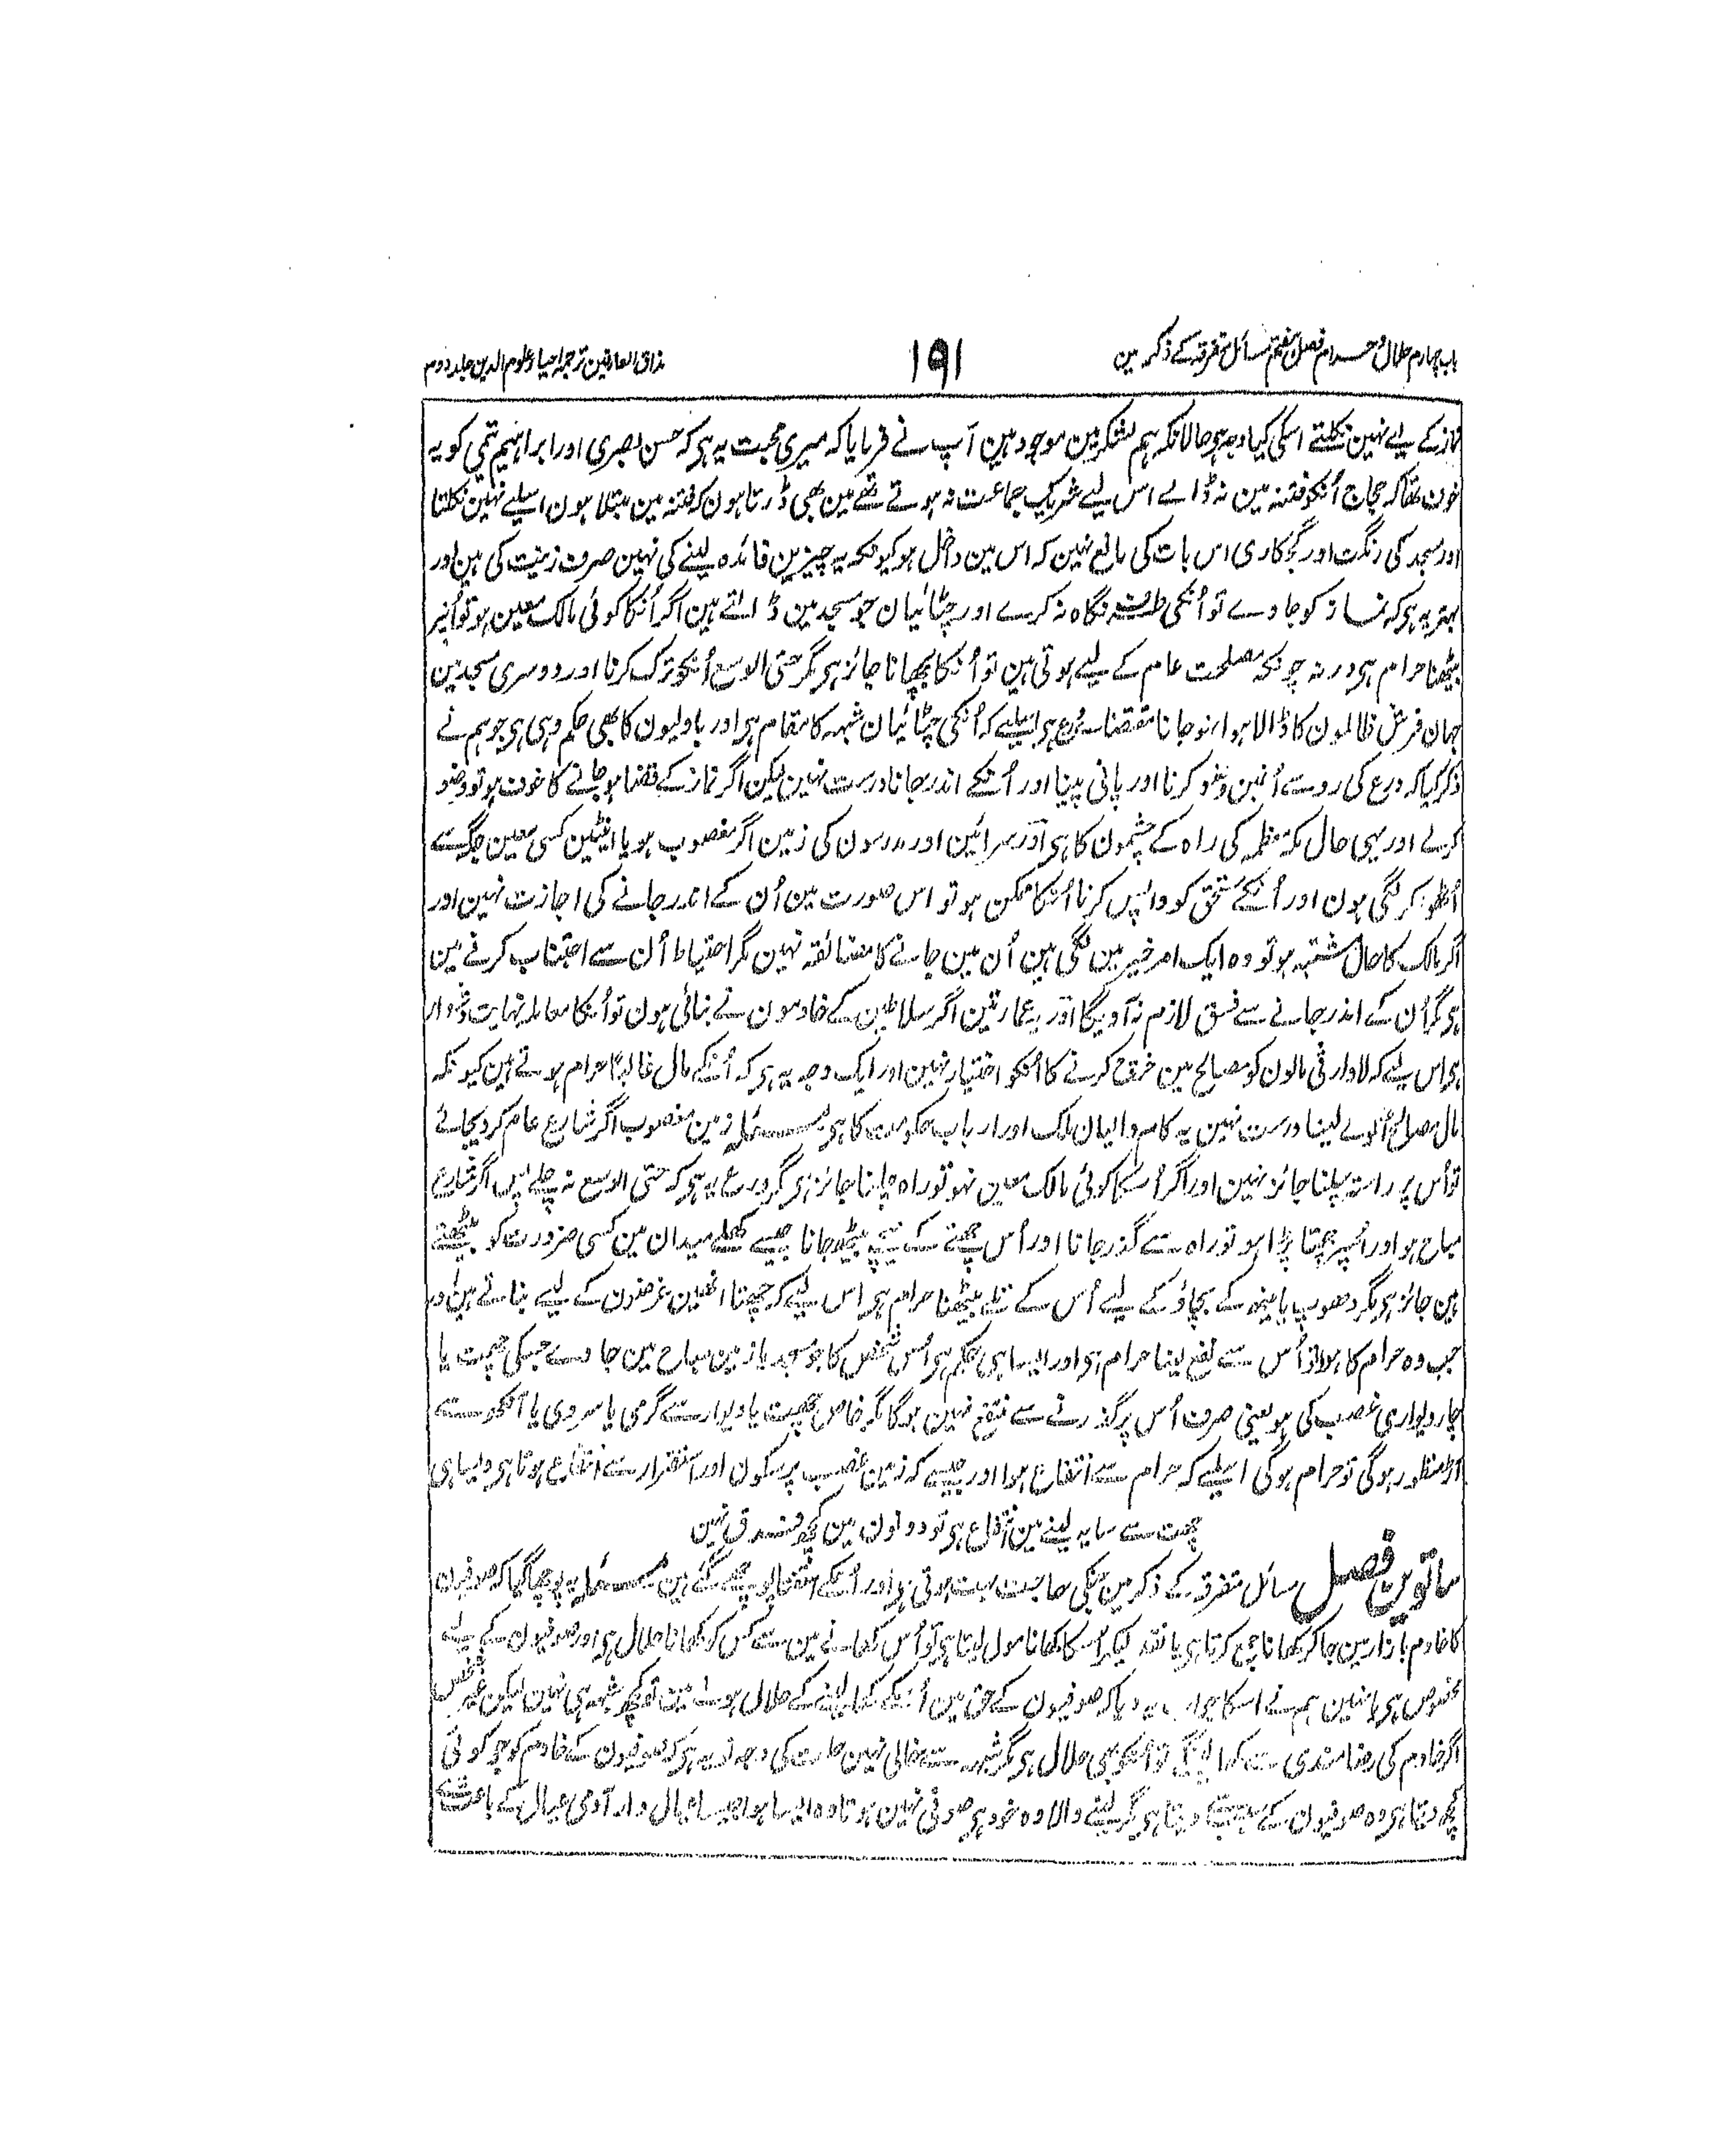 باب چہارم حلال و حرام فصل ہفتم مسائل متفرقہ کے ذکر مین
۱۹۱
مذاق العارفین ترجمہ احیاء علوم الدین جلد دوم
نماز کے لیے نہین نکلتے اسکی کیا وجہ ہو حالانکہ ہم لشکر مین موجود ہین آپ نے فرمایا کہ میری حجت یہ ہی کہ حسن بصری اور ابراہیم تیمی کو یہ
خوف تھا کہ حجاج اُنکو فتنہ مین نہ ڈالے اس لیے شریک جماعت نہ ہوتے تھے مین بھی ڈرتا ہون کہ فتنہ مین مبتلا ہون اسلیے نہین نکلتا
اور مسجد کی رنگت اور گچکاری اس بات کی مانع نہین کہ اس مین داخل ہو کیونکہ یہ چیزین فائدہ لینے کی نہین صرف زینت کی ہین اور
بہتر یہ ہی کہ نماز کو جاوے تو اُنکی طرف نگاہ نہ کرے اور چٹائیان جو مسجد مین ڈالتے ہین اگر اُنکا کوئی مالک معین ہو تو اُنپر
بیٹھنا حرام ہی ورنہ چونکہ مصلحت عام کے لیے ہوتی ہین تو اُنکا بچھانا جائز ہی مگر حتی الوسع اُنکو ترک کرنا اور دوسری مسجد مین
جہان فرش ظالمون کا ڈالا ہوا نہو جانا مقتضاے ورع ہی اسلیے کہ اُنکی چٹائیان شبہہ کا مقام ہی اور باولیون کا بھی حکم وہی ہی جو ہم نے
ذکر کیا کہ ورع کی رو سے اُنمین وضو کرنا اور پانی پینا اور اُنکے اندر جانا درست نہین لیکن اگر نماز کے قضا ہو جانے کا خوف ہو تو وضو
کرلے اور یہی حال مکہ معظمہ کی راہ کے چشمون کا ہی اور سرائین اور مدرسون کی زمین اگر مغصوب ہو یا اینٹین کسی معین جگہ سے
اُٹھوا کر لگی ہون اور اُنکے مستحق کو واپس کرنا اُنکا ممکن ہو تو اس صورت مین اُن کے اندر جانے کی اجازت نہین اور
اگر مالک کا حال مشتبہ ہو تو وہ ایک امر خیر مین لگی ہین اُن مین جانے کا مضائقہ نہین مگر احتیاط اُن سے اجتناب کرنے مین
ہی مگر اُن کے اندر جانے سے فسق لازم نہ آویگا اور یہ عمارتین اگر سلاطین کے خادمون نے بنائی ہون تو اُنکا معاملہ نہایت دشوار
ہی اس لیے کہ لاوارثی مالون کو مصالح مین خرچ کرنے کا اُنکو اختیار نہین اور ایک وجہ یہ ہی کہ اُنکے مال غالباً حرام ہوتے ہین کیونکہ
مال مصالح اُنکو لینا درست نہین یہ کام والیان ملک اور ارباب حکومت کا ہی مسئلہ زمین مغصوب اگر شارع عام کر دیجائے
تو اُس پر راستہ چلنا جائز نہین اور اگر اُسکا کوئی مالک معین نہو تو راہ چلنا جائز ہی مگر ورع یہ ہی کہ حتی الوسع نہ چلے پس اگر شارع
مباح ہو اور اُسپر چھتا پڑا ہو تو راہ سے گذر جانا اور اُس چھتے کے نیچے بیٹھ جانا جیسے کھلے میدان مین کسی ضرورت کو بیٹھتے
ہین جائز ہی مگر دھوپ یا مینہ کے بچاؤ کے لیے اُس کے تلے بیٹھنا حرام ہی اس لیے کہ چھتا انھین غرضون کے لیے بناتے ہین اور
جب وہ حرام کا ہوا تو اُس سے نفع لینا حرام ہی اور ایسا ہی حکم ہی اُس شخص کا جو مسجد یا زمین مباح مین جاوے جسکی چھت یا
چاردیواری غصب کی ہو یعنی صرف اُس پر گذرنے سے منتفع نہین ہوگا مگر خاص چھت یا دیوار سے گرمی یا سردی یا آنکھ سے
آڑ منظور ہوگی تو حرام ہوگی اسلیے کہ حرام سے انتفاع ہوا اور جیسے کہ زمین غصب پر سکون اور استقرار سے انتفاع ہوتا ہی ویسا ہی
چھت سے سایہ لینے مین انتفاع ہی تو دونون مین کچھ فرق نہین
ساتوین فصل مسائل متفرقہ کے ذکر مین جنکی حاجت بہت ہوتی ہی اور اُنکے استفتا پوچھے گئے ہین مسئلہ یہ پوچھا گیا کہ صوفیون
کا خادم بازار مین جا کر کھانا جمع کرتا ہی یا نقد لیکر اُسکا کھانا مول لیتا ہی تو اُس کھانے مین سے کس کو کھانا حلال ہی اور صوفیون کے لیے
مخصوص ہی یا نہین ہم نے اسکا جواب یہ دیا کہ صوفیون کے حق مین اُنکے کھا لینے کے حلال ہونے مین تو کچھ شبہہ ہی نہین لیکن غیر شخص
اگر خادم کی رضامندی سے کھا لینگے تو اُنکو بھی حلال ہی مگر شبہہ سے خالی نہین حلت کی وجہ تو یہ ہی کہ صوفیون کے خادم کو جو کوئی
کچھ دیتا ہی وہ صوفیون کے سبب دیتا ہی مگر لینے والا وہ خود ہی صوفی نہین ہوتا وہ ایسا ہوا جیسا عیال دار آدمی عیال کے باعث